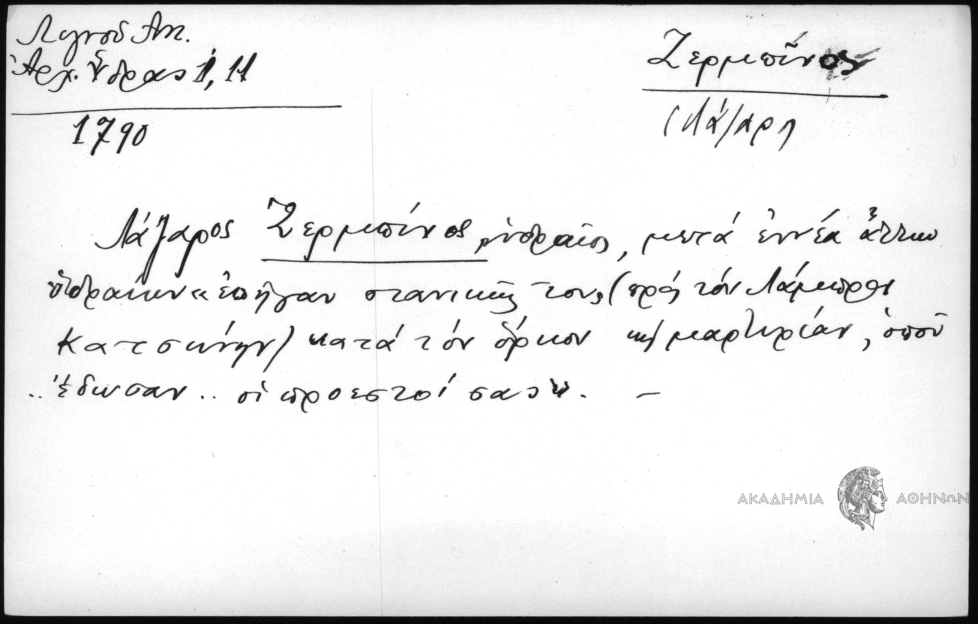 Λιγνοῦ Ἀντ.
Ἀρχ. Ὕδρας 1, 11
1790
Ζερμπῖνος
(Λάζαρη
Λάζαρος Ζερμπίνος, ὑδραῖος, μετά ἐννέα ἄλλων
ὑδραίων « τους, (πρός τόν Λάμπρον
Κατσώνην) κατά τόν ὅρκον κ/ μαρτυρίαν, ὁποῦ
.. ἔδωσαν .. οἱ προεστοί σας». –
ΑΚΑΔΗΜΙΑ ΑΘΗΝΩΝ